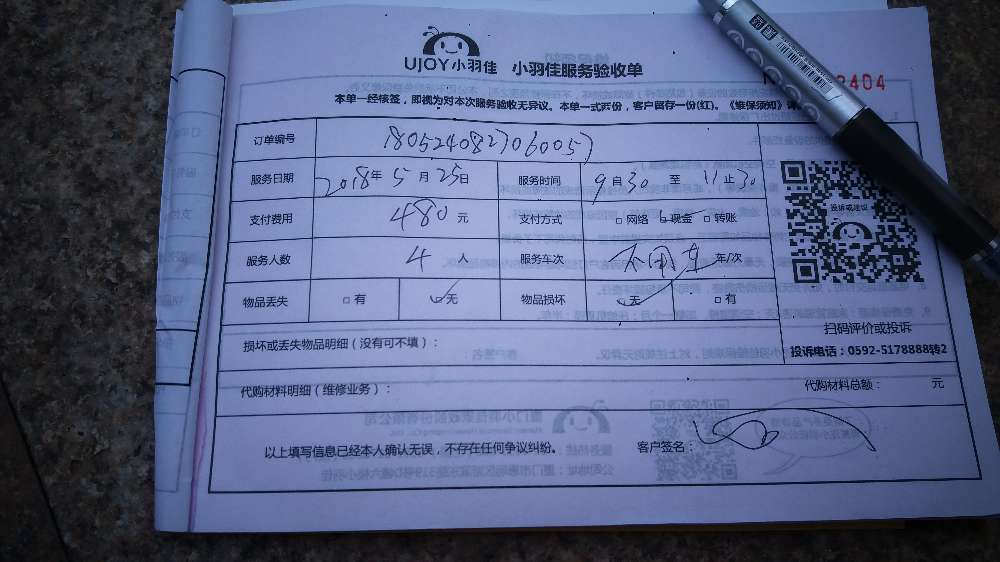 UJOY小羽佳 小羽佳服务验收单
3404
本单一经核签，即视为对本次服务验收无异议。本单一式两份，客户留存一份(红)。《维保须知》
订单编号 180524082706005
服务日期 2018年5月25日 服务时间 9自30至11止30
支付费用 480元 支付方式 □网络 □现金 □转账
投诉或建议
服务人数 4人 服务车次 不用车 车/次
物品丢失 □有 □无 物品损坏 □无 □有
扫码评价或投诉
损坏或丢失物品明细（没有可不填）：
投诉电话：0592-5178888转2
代购材料明细（维修业务）： 代购材料总额： 元
以上填写信息已经本人确认无误，不存在任何争议纠纷。 客户签名：